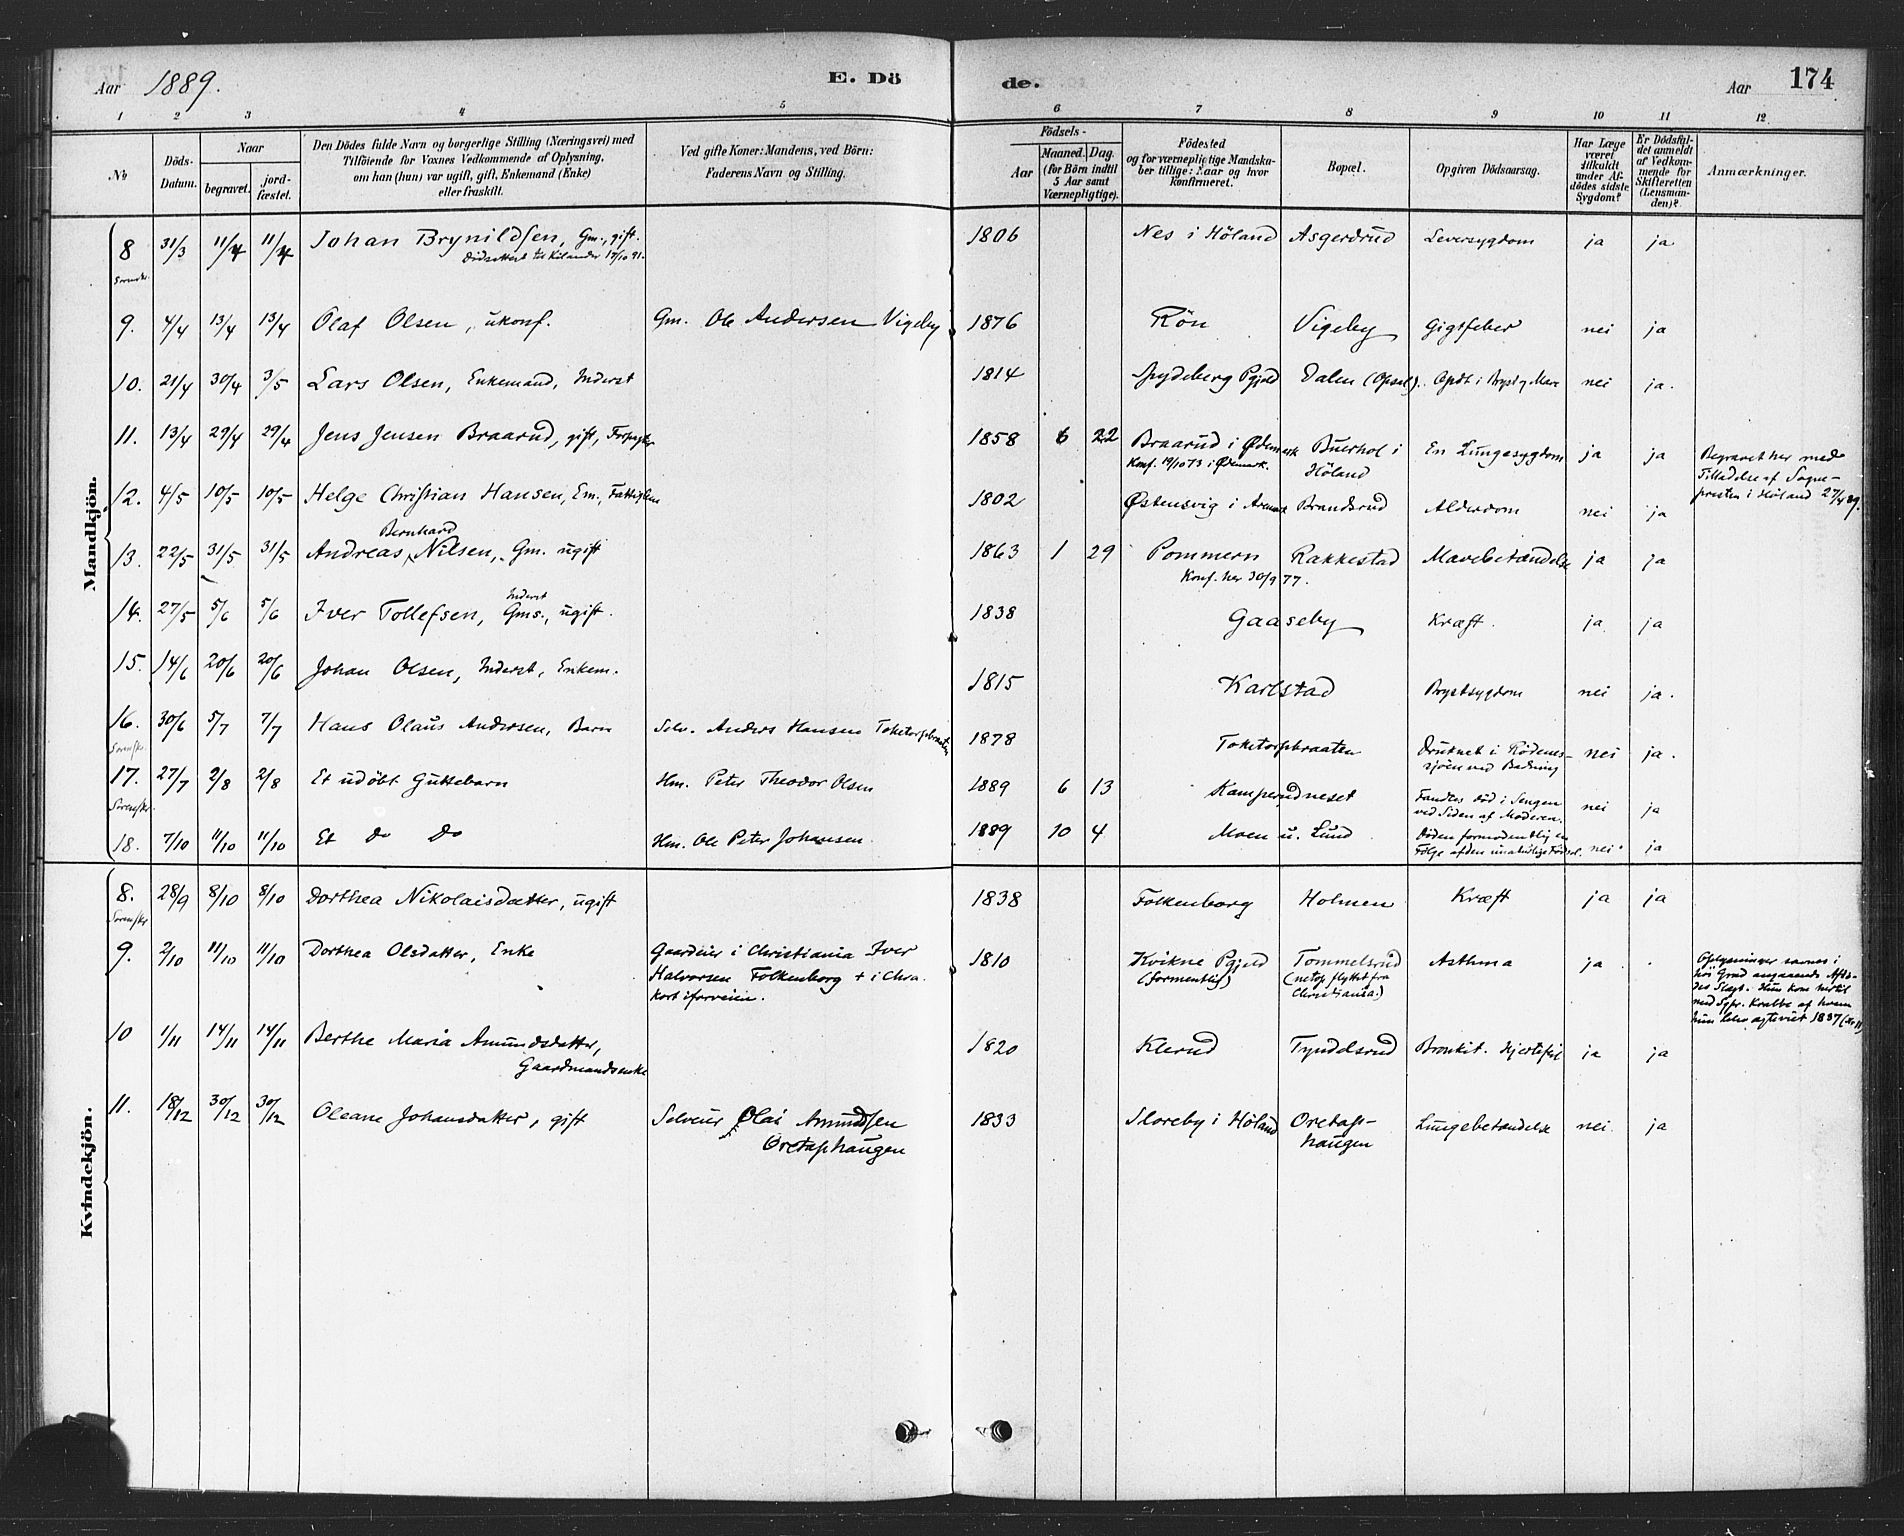 Aar 1889. E. Dö de. Aar 174
1 2 3 4 5 6 7 8 9 10 11 12
No
Döds-
Datum.
Naar
begravet.
jord-
fæstet.
Den Dödes fulde Navn og borgerlige Stilling (Næringsvei) med
Tilföiende for Voxnes Vedkommende af Oplysning,
om han (hun) var ugift, gift, Enkemand (Enke)
eller fraskilt.
Ved gifte Koner: Mandens, ved Börn:
Faderens Navn og Stilling.
Födsels-
Aar
Maaned. Dag.
(for Börn indtil
5 Aar samt
Værnepligtige).
Födested
og for værnepligtige Mandska-
ber tillige: Naar og hvor
konfirmeret.
Bopæl.
Opgiven Dödsaarsag.
Har Læge
været
tilkaldt
under Af-
dödes sidste
Sygdom?
Er Dödsfal-
det anmeldt
af Vedkom-
mende for
Skifteretten
(Lensman-
den)?
Anmærkninger.
Mandkjön.
8 31/3 11/4 11/4 Johan Brynildsen, Gm., gift. 1806 Nes i Höland Asgerdrud Leversygdom ja ja
Dödsattest til Kilander 17/10 91.
9. 4/4 13/4 13/4 Olaf Olsen, ukonf. Gm. Ole Andersen Vigeby 1876 Rön Vigeby Gigtfeber nei ja
10. 21/4 30/4 3/5 Lars Olsen, Enkemand, Inderst 1814 Spydeberg Pgjeld Dalen (Opsal). i Bryst og Mave nei ja.
11. 13/4 29/4 29/4 Jens Jensen Braarud, gift, 1858 6 22 Braarud i Ødemark Buerhol i En Lungesygdom ja ja Begravet her med
Konf. 19/10 73 i Ødemark. Höland Tilladelse af Sogne-
presten i Höland 27/4 89.
12. 4/5 10/5 10/5 Helge Christian Hansen, Em., Fattiglem 1802 Østensvig i Aremark Brandsrud Alderdom nei ja
Bernhard
13. 22/5 31/5 31/5 Andreas Nilsen, Gm. ugift 1863 1 29 Pommern Rakkestad Mavebetændelse ja ja
Konf. her 30/9 77.
Inderst
14. 27/5 5/6 5/6 Iver Tollefsen, Gms., ugift. 1838 Gaaseby Kræft. ja ja
15. 14/6 20/6 20/6 Johan Olsen, Inderst, Enkem. 1815 Karlstad Brystsygdom nei ja.
16. 30/6 5/7 7/7 Hans Olaus Andersen, Barn Selv. Anders Hansen Toketorpbraaten 1878 Toketorpbraaten Druknet i Rödenes-
sjöen ved Badning nei ja.
17. 27/7 2/8 2/8 Et udöbt Guttebarn Hm. Peter Theodor Olsen 1889 6 13 Kamperudneset Fandtes död i Sengen
ved Siden af Moderen. nei ja
18. 7/10 11/10 11/10 Et Do Do Hm. Ole Peter Johansen. 1889 10 4 Moen u. Lund Döden formodentlig en
Fölge af den unaturlige Födsel. nei ja
Kvindekjön.
8. 28/9 8/10 8/10 Dorthea Nikolaisdatter, ugift 1838 Folkenborg Holmen Kræft ja ja
9. 2/10 11/10 11/10 Dorthea Olsdatter, Enke Gaardeier i Christiania Iver 1810 Kvikne Pgjeld Tommelsrud Asthma ja Oplysninger savnes i
Halvorsen Folkenborg + i Chra. (formentlig) (netop flyttet fra
kort iforveien. Christiania.)
10 1/11 14/11 14/11 Berthe Maria Amundsdatter, 1820 Klerud Tyndelsrud Bronkit. Hjertefeil ja ja
Gaardmandsenke
11. 18/12 30/12 30/12 Oleane Johansdatter, gift Selveier Olai Amundsen 1833 Sloreby i Höland Oretaps-
haugen Lungebetændelse nei ja
Oretaphaugen